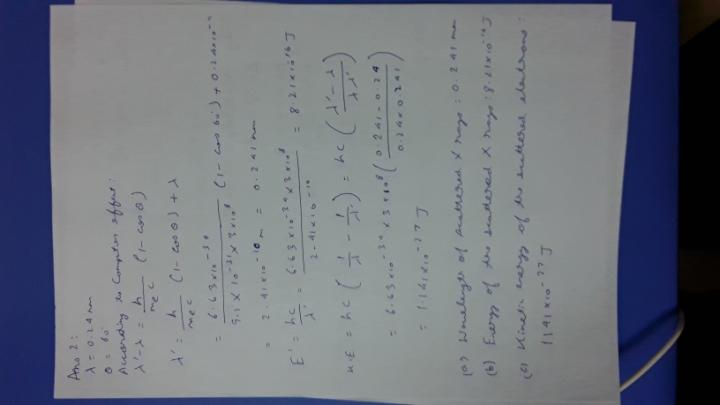 Ans 2:
λ = 0.24 nm
θ = 60°
According to Compton effect:
λ' - λ = h/mec (1 - cosθ)
λ' = h/mec (1 - cosθ) + λ
= 6.63×10⁻³⁴/9.1×10⁻³¹×3×10⁸ (1 - cos 60°) + 0.24×10⁻⁹
= 2.41×10⁻¹⁰ m = 0.241 nm
E' = hc/λ' = 6.63×10⁻³⁴×3×10⁸/2.41×10⁻¹⁰ = 8.21×10⁻¹⁶ J
K.E = hc (1/λ - 1/λ') = hc (λ' - λ/λλ')
= 6.63×10⁻³⁴×3×10⁸ (0.241 - 0.24/0.24×0.241)
= 1.141×10⁻²⁷ J
(a) Wavelength of scattered X rays: 0.241 nm
(b) Energy of the scattered X rays: 8.21×10⁻¹⁶ J
(c) Kinetic energy of the scattered electrons:
1141×10⁻²⁷ J